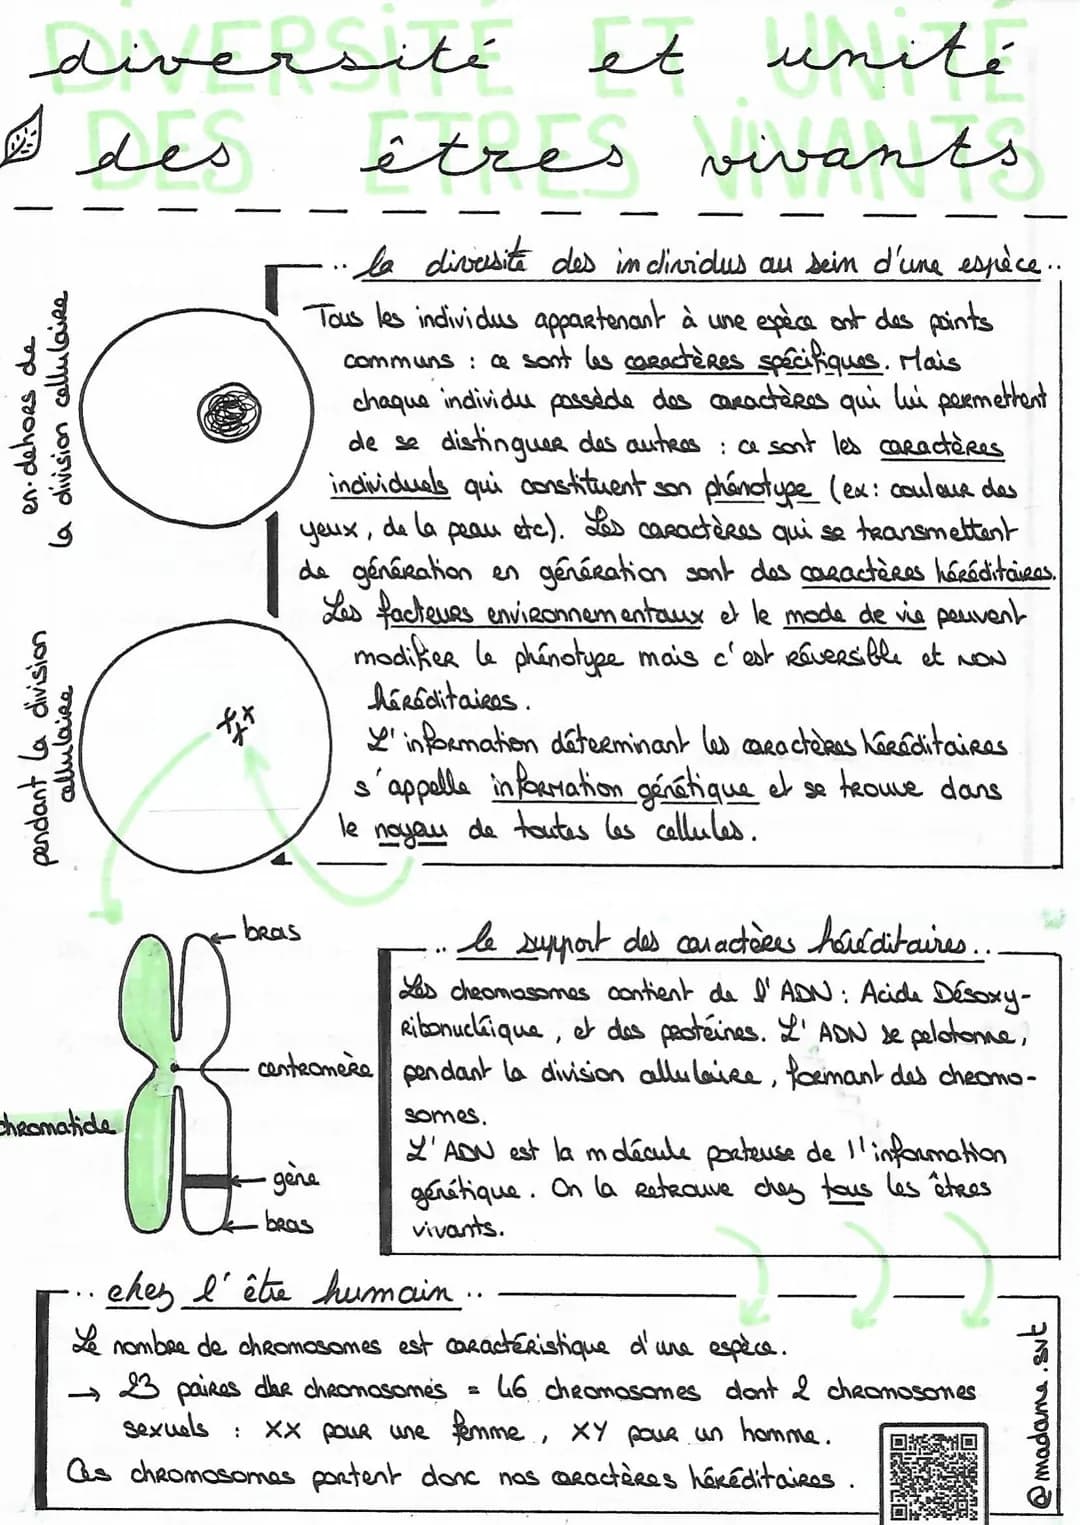 DIVERSITÉ ET UNITÉ
DES ETRES VIVANTS
diversité et unité
des êtres vivants
en-dehors de
la division cellulaire
pendant la division
cellulaire
.. la diversité des individus au sein d'une espèce ..
Tous les individus appartenant à une espèce ont des points
communs : ce sont les caractères spécifiques. Mais
chaque individu possède des caractères qui lui permettent
de se distinguer des autres : ce sont les caractères
individuels qui constituent son phénotype (ex: couleur des
yeux, de la peau etc). Les caractères qui se transmettent
de génération en génération sont des caractères héréditaires.
Les facteurs environnementaux et le mode de vie peuvent
modifier le phénotype mais c'est réversible et NON
héréditaires.
L'information déterminant les caractères héréditaires
s'appelle information génétique et se trouve dans
le noyau de toutes les cellules.
bras
centromère
chromatide
gène
bras
.. le support des caractères héréditaires..
Les chromosomes contient de l'ADN : Acide Désoxy-
Ribonucléique, et des protéines. L'ADN se pelotonne,
pendant la division cellulaire, formant des chromo-
somes.
L'ADN est la molécule porteuse de l'information
génétique. On la retrouve chez tous les êtres
vivants.
.. chez l'être humain ..
Le nombre de chromosomes est caractéristique d'une espèce.
→ 23 paires de chromosomes = 46 chromosomes dont 2 chromosomes
sexuels : XX pour une femme, XY pour un homme.
Ces chromosomes portent donc nos caractères héréditaires.
@madame.svt